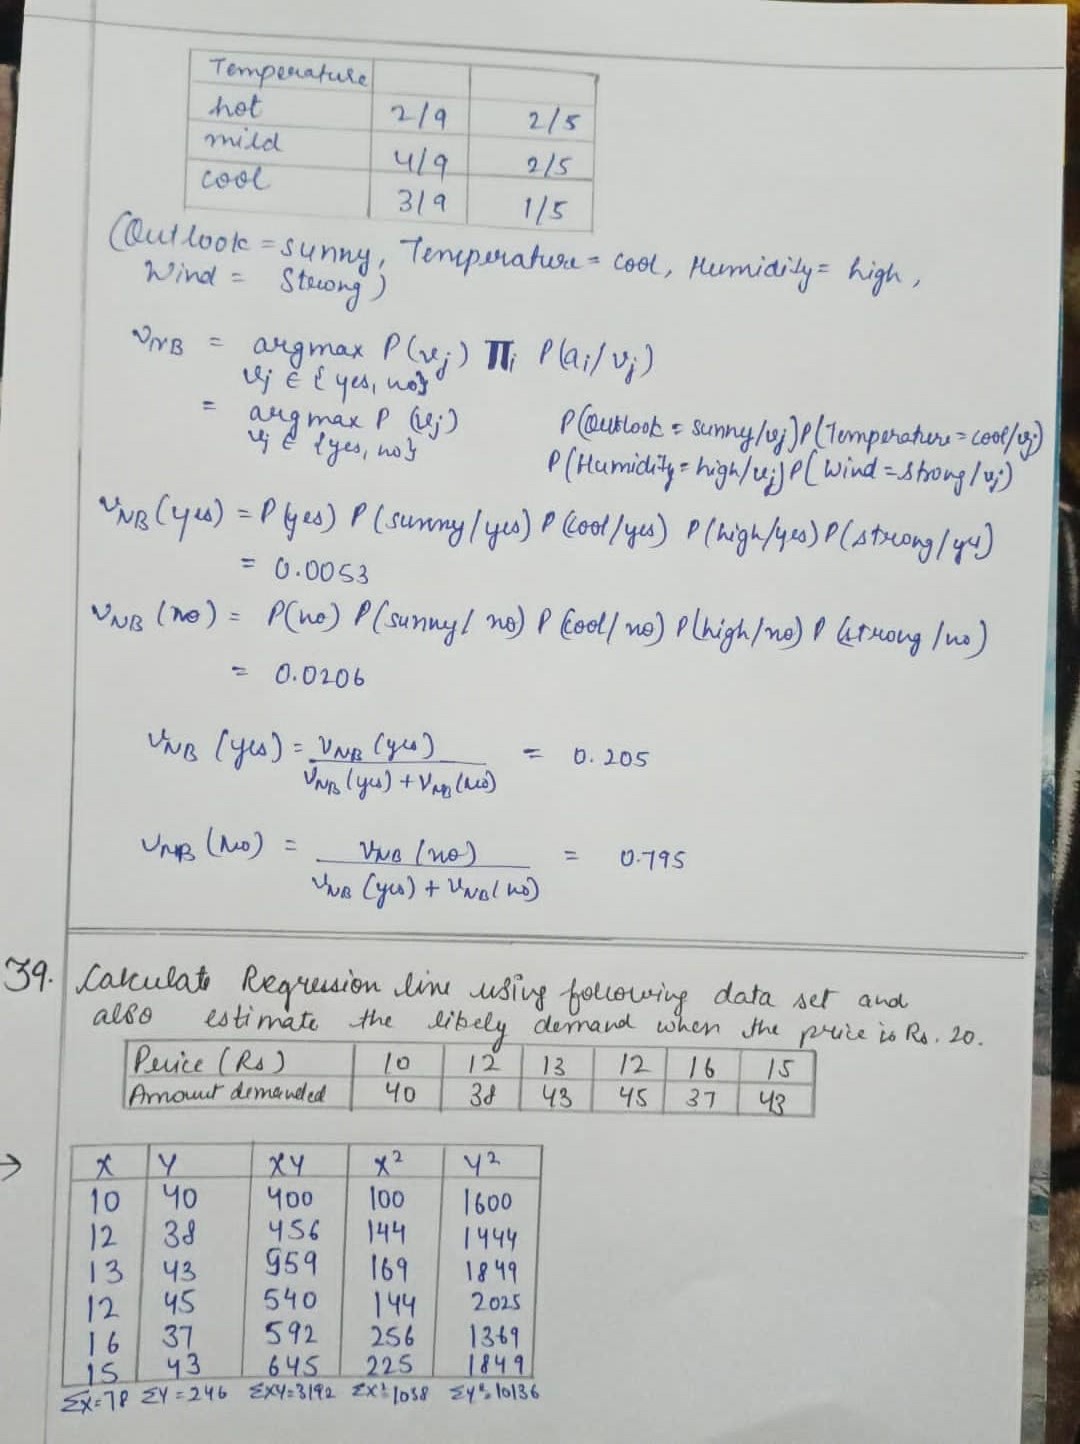 Temperature
hot 2/9 2/5
mild 4/9 2/5
cool 3/9 1/5
(Outlook = sunny, Temperature = cool, Humidity = high,
Wind = Strong)
VNB = argmax P(vj) πi P(ai/vj)
vj ∈ {yes, no}
= argmax P (vj) P(Outlook = sunny/vj) P(Temperature = cool/vj)
vj ∈ {yes, no} P(Humidity = high/vj) P(Wind = strong/vj)
VNB (yes) = P(yes) P(sunny/yes) P(cool/yes) P(high/yes) P(strong/yes)
= 0.0053
VNB (no) = P(no) P(sunny/no) P(cool/no) P(high/no) P(strong/no)
= 0.0206
VNB (yes) = VNB (yes) / VNB (yes) + VNB (No) = 0.205
VNB (No) = VNB (no) / VNB (yes) + VNB (no) = 0.795
39. Calculate Regression line using following data set and
also estimate the likely demand when the price is Rs. 20.
Price (Rs) 10 12 13 12 16 15
Amount demanded 40 38 43 45 37 43
→ X Y XY X² Y²
10 40 400 100 1600
12 38 456 144 1444
13 43 959 169 1849
12 45 540 144 2025
16 37 592 256 1369
15 43 645 225 1849
ΣX=78 ΣY=246 ΣXY=3192 ΣX²=1038 ΣY²=10136